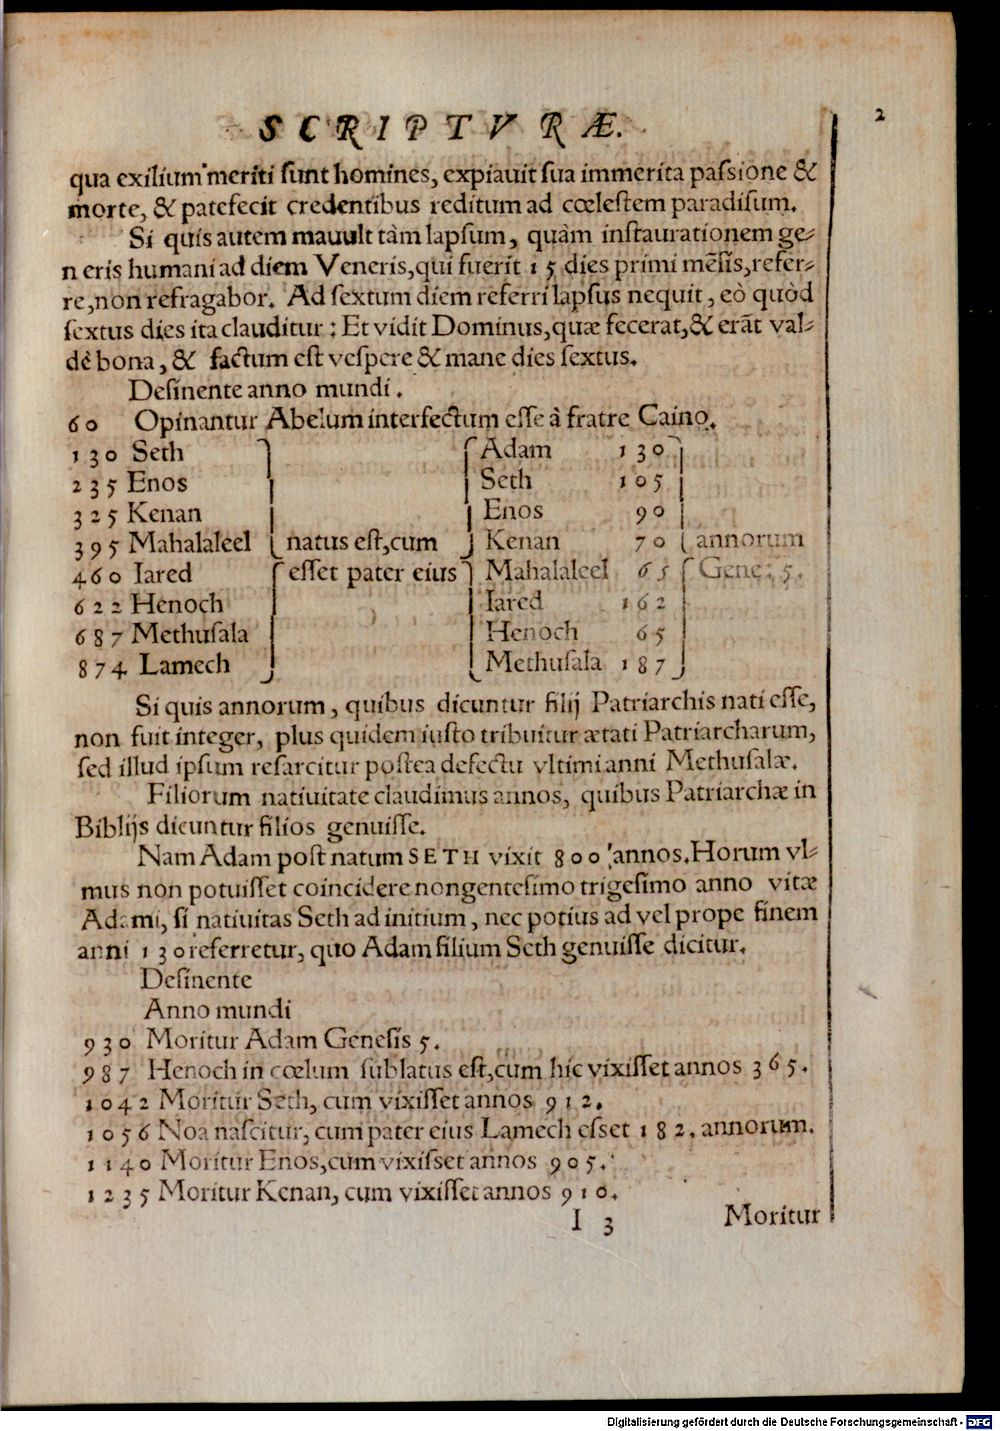 SCRIPTVRÆ. 2
qua exilium meriti ſunt homines, expiauit ſua immerita paſsione &
morte, & patefecit credentibus reditum ad cœleſtem paradiſum.
Si quis autem mauult tàm lapſum, quàm inſtaurationem ge-
neris humani ad diem Veneris, qui fuerit 15 dies primi mẽſis, refer-
re, non refragabor. Ad ſextum diem referri lapſus nequit, eò quòd
ſextus dies ita clauditur: Et vidit Dominus, quæ fecerat, & erãt val-
dè bona, & factum eſt veſpere & mane dies ſextus.
Deſinente anno mundi.
60 Opinantur Abelum interfectum eſſe à fratre Caino.
130 Seth Adam 130
235 Enos Seth 105
325 Kenan Enos 90
395 Mahalaleel natus eſt, cum Kenan 70 annorum
460 Iared eſſet pater eius Mahalaleel 65 Gene: 5.
622 Henoch Iared 162
687 Methuſala Henoch 65
874 Lamech Methuſala 187
Si quis annorum, quibus dicuntur filij Patriarchis nati eſſe,
non fuit integer, plus quidem iuſto tribuitur ætati Patriarcharum,
ſed illud ipſum reſarcitur poſtea defectu vltimi anni Methuſalæ.
Filiorum natiuitate claudimus annos, quibus Patriarchæ in
Biblijs dicuntur filios genuiſſe.
Nam Adam poſt natum SETH vixit 800 annos. Horum vl-
mus non potuiſſet coincidere nongenteſimo trigeſimo anno vitæ
Adami, ſi natiuitas Seth ad initium, nec potius ad vel prope finem
anni 130 referretur, quo Adam filium Seth genuiſſe dicitur.
Deſinente
Anno mundi
930 Moritur Adam Geneſis 5.
987 Henoch in cœlum ſublatus eſt, cum hic vixiſſet annos 365.
1042 Moritur Seth, cum vixiſſet annos 912.
1056 Noa naſcitur, cum pater eius Lamech eſset 182. annorum.
1140 Moritur Enos, cum vixiſset annos 905.
1235 Moritur Kenan, cum vixiſſet annos 910.
I 3 Moritur
Digitalisierung gefördert durch die Deutsche Forschungsgemeinschaft - DFG